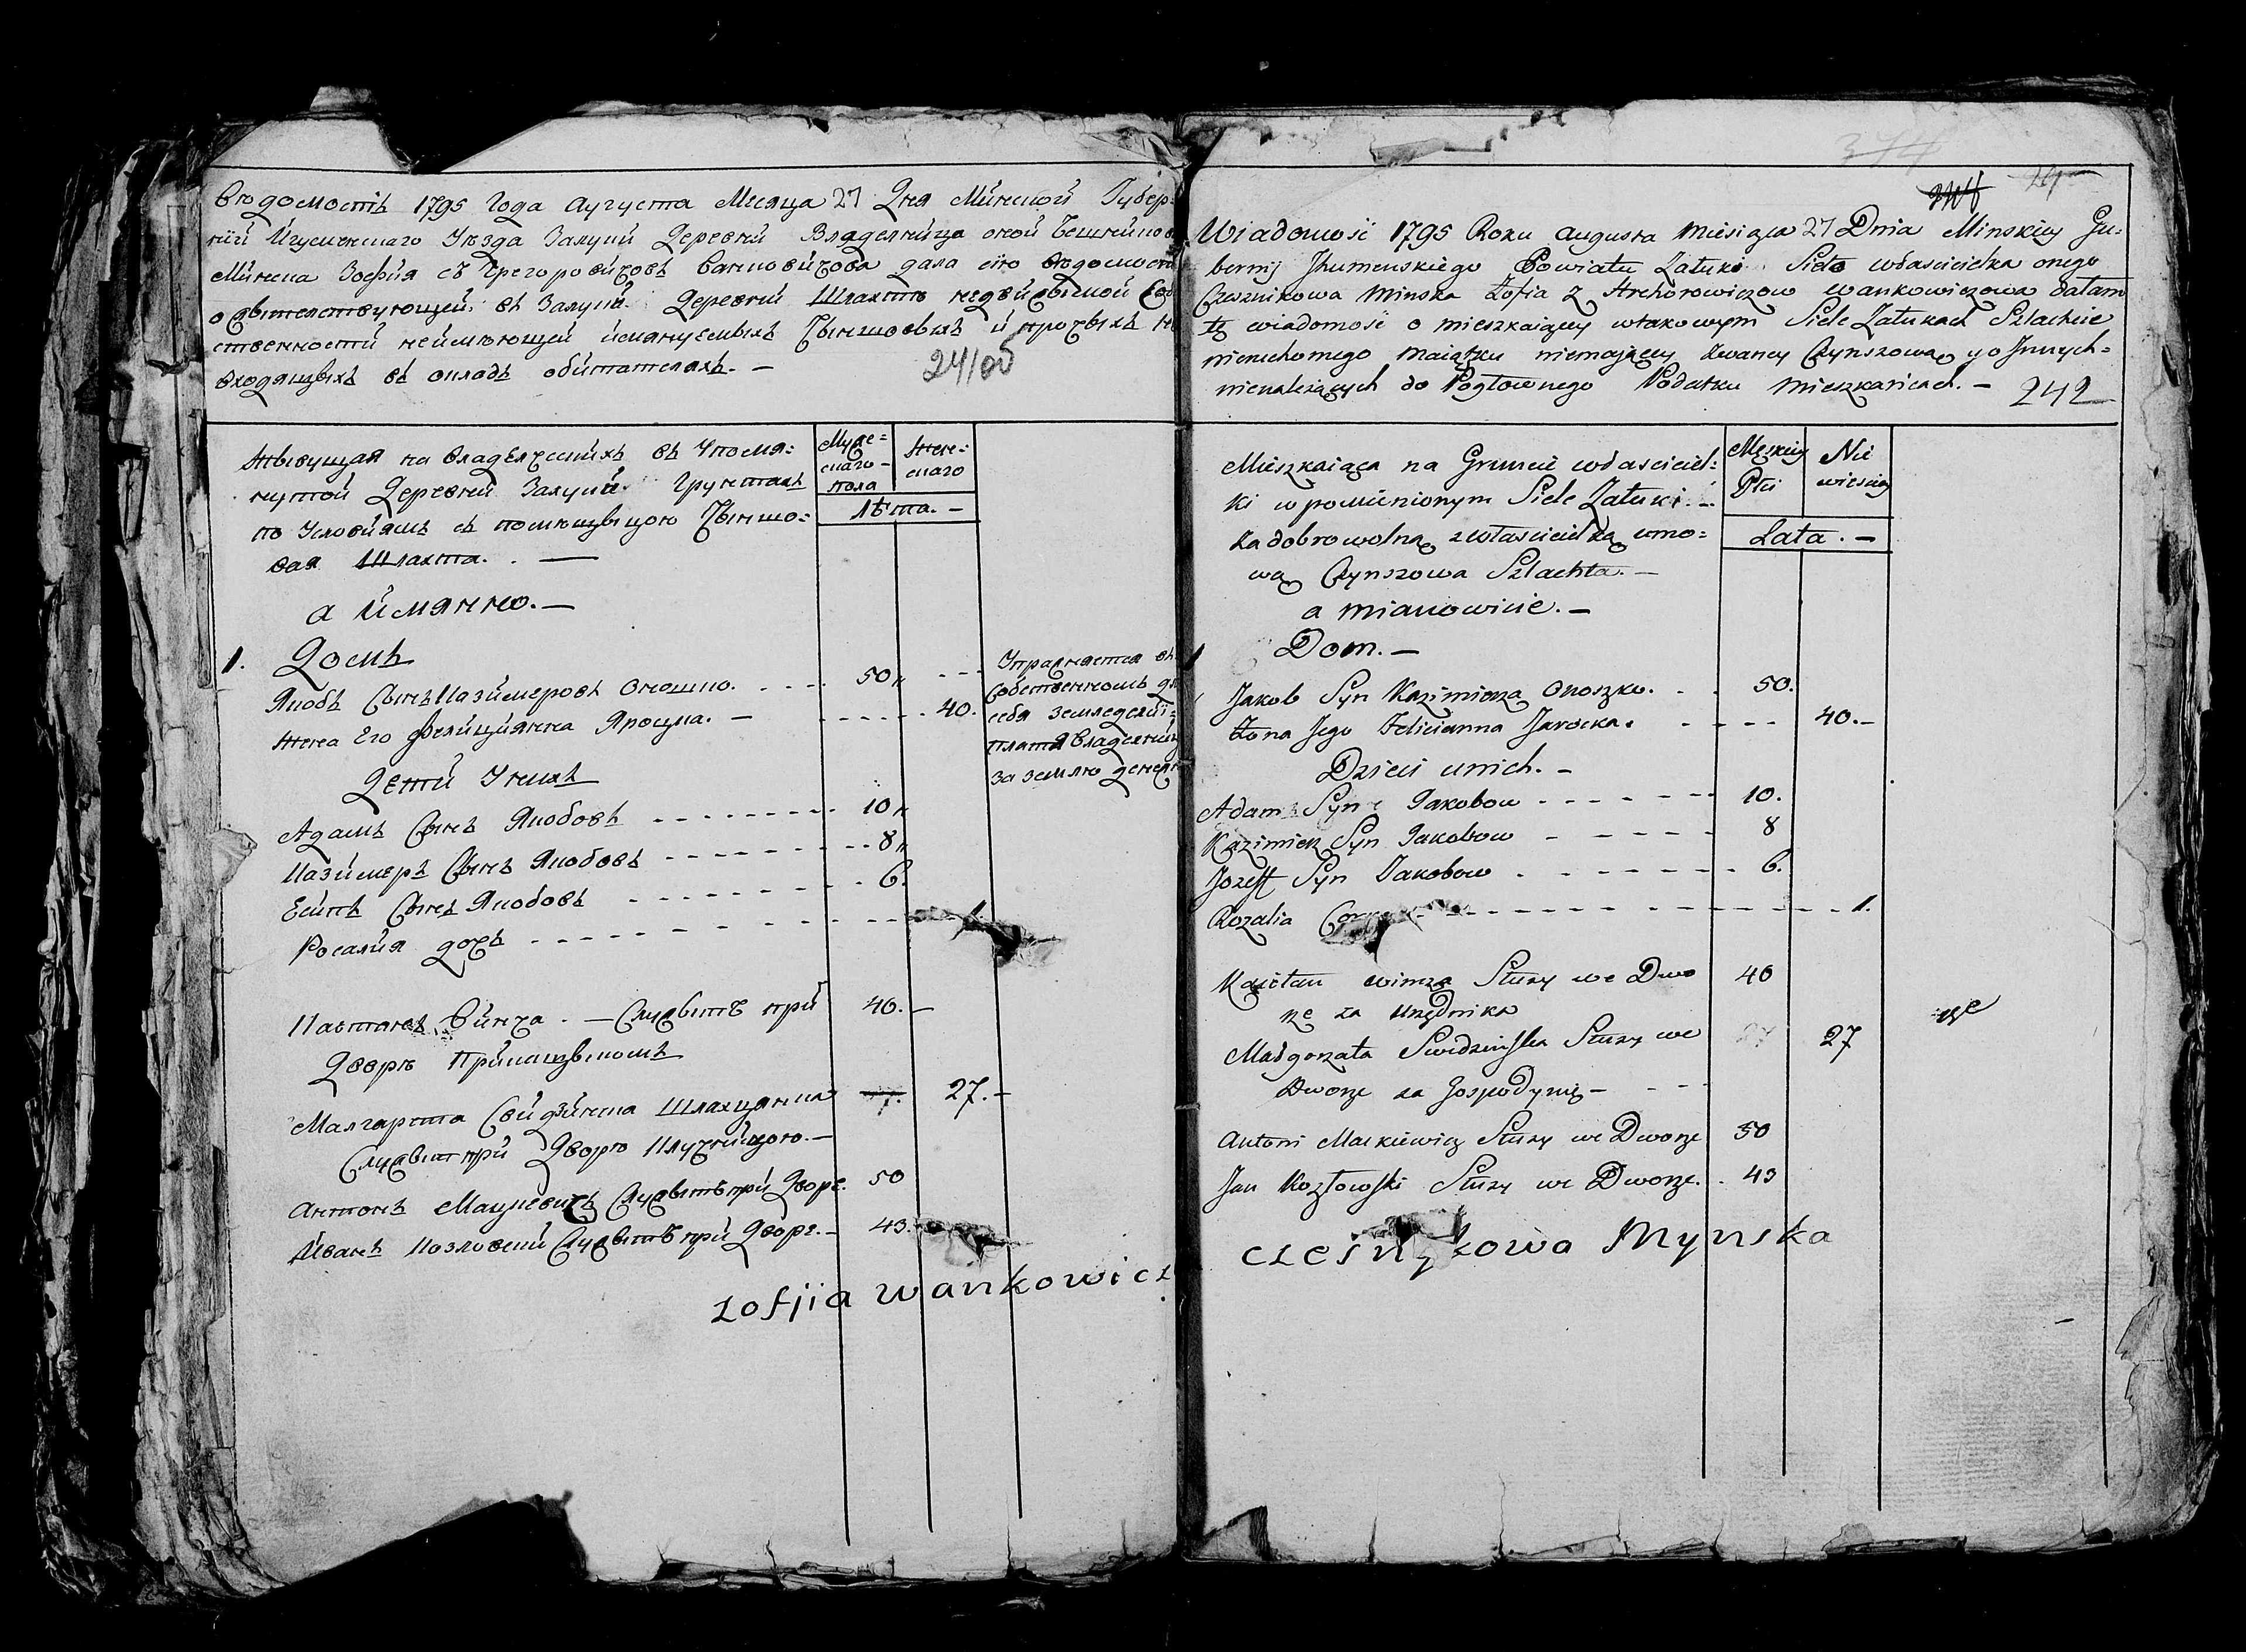 Вѣдомость 1795 Года Аугуста Месяца 27 Дня Минской Губер=
нїи Игуменскаго Уѣзда Залуки Деревни Владелница оной
Минска Зофия съ Грегоровичовъ Ванковичова дала сїю вѣдомость
въ Залуки Деревни Шляхтѣ недвижимой
ственности неимѣющей имянуемыхъ Чыншовыхъ и прочыхъ
входящыхъ въ окладъ обитателяхъ. —
241об
Жывущая на владѣлческихъ въ Упомя=
нутой Деревни Залуки Грунтахъ
по Условиямъ съ помѣщыцою Чыншо=
вая Шляхта. —
а имянно. —
Муже=
скаго
пола
Жен=
скаго
Лѣта. —
1. Домъ
Якобъ Сынъ Казимеровъ Оношко. 50
Жена Его Фелицианна Яроцка. — 40.
Дети Унихъ
Адамъ Сынъ Якобовъ 10
Казимеръ Сынъ Якобовъ 8
Есипъ Сынъ Якобовъ 6.
Росалия дочь 1.
Упражняется въ
собственномъ для
себя земледелии
платя владелницы
за землю
Каетанъ Винча. — Служытъ при 40. —
Дворѣ Прикащыкомъ
Малгарета Свидзинска Шляхцянка 27. —
Служыт при Дворѣ Ключницою. —
Антонъ Мацкевичъ Служытъ при Дворе. 50
Иванъ Козловский Служытъ при Дворе. — 43.
Zofjia Wankowicz
Wiadomość 1795 Roku Augusta Miesiąca 27 Dnia Minskiey Gu=
bernij Jhumenskiego Powiatu Załuki Sieła właścicielka onego
Czesznikowa Minska Zofia z Hrehorowiczow Wankowiczowa dałam
tę wiadomość o mieszkaiącey wtakowym Siele Załukach Szlachcie
nieruchomego Maiątku niemaiącey zwaney Czynszową y o Jnnych=
nienależących do Pogłownego Podatku Mieszkańcach. — 242
Mieszkaiąca na Gruncie właściciel=
ki wpomienionym Siele Załuki. —
Za dobrowolną zwłaścicielką umo=
wą Czynszowa Szlachta. —
a mianowicie. —
Męskiey
Płci
Nie
wiesciey
Lata. —
1 Dom. —
Jakob Syn Kazimierza Onoszko. 50.
Żona Jego Felicianna Jarocka. 40. —
Dzieci unich. —
Adam Syn Jakobow 10.
Kazimierz Syn Jakobow 8
Jozeff Syn Jakobow 6.
Rozalia 1.
Kaietan Wincza Służy we Dwo 40
rze za Urzędnika
Małgorzata Swidzinska Służy we 27
Dworze za Gospodynię —
Antoni Mackiewicz Służy we Dworze 50
Jan Kozłowski Służy we Dworze. 43
Czesnykowa Mynska